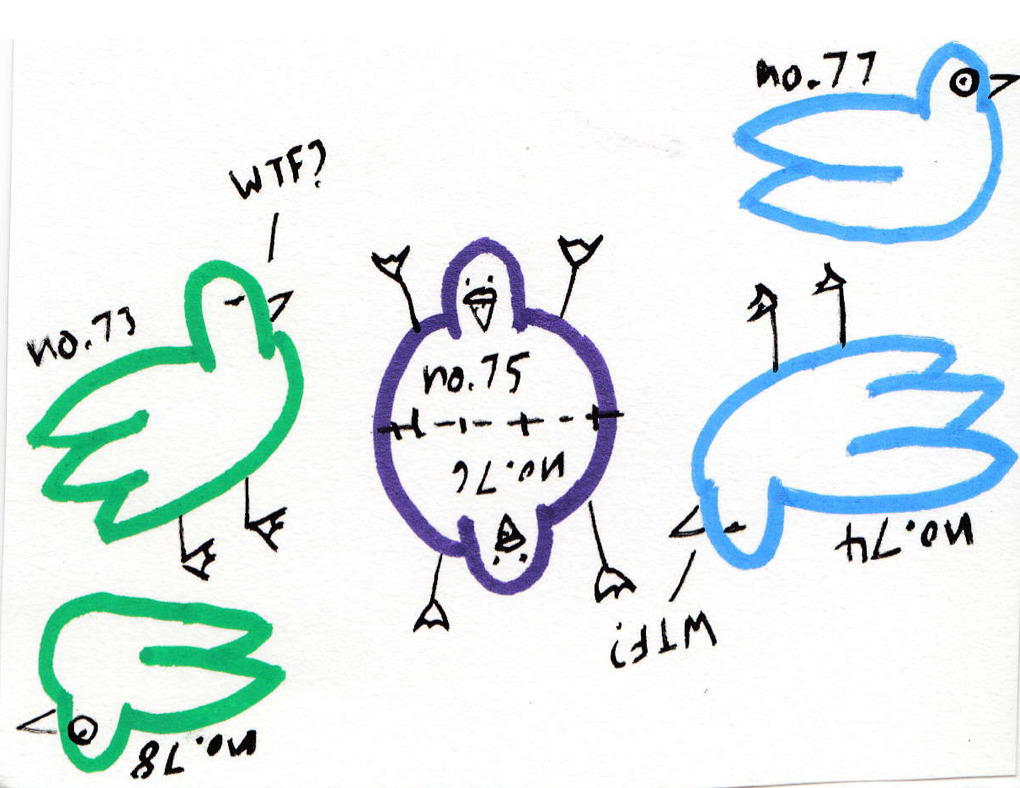 no.77
WTF?
no.73
no.75
no.76
no.74
WTF?
no.78